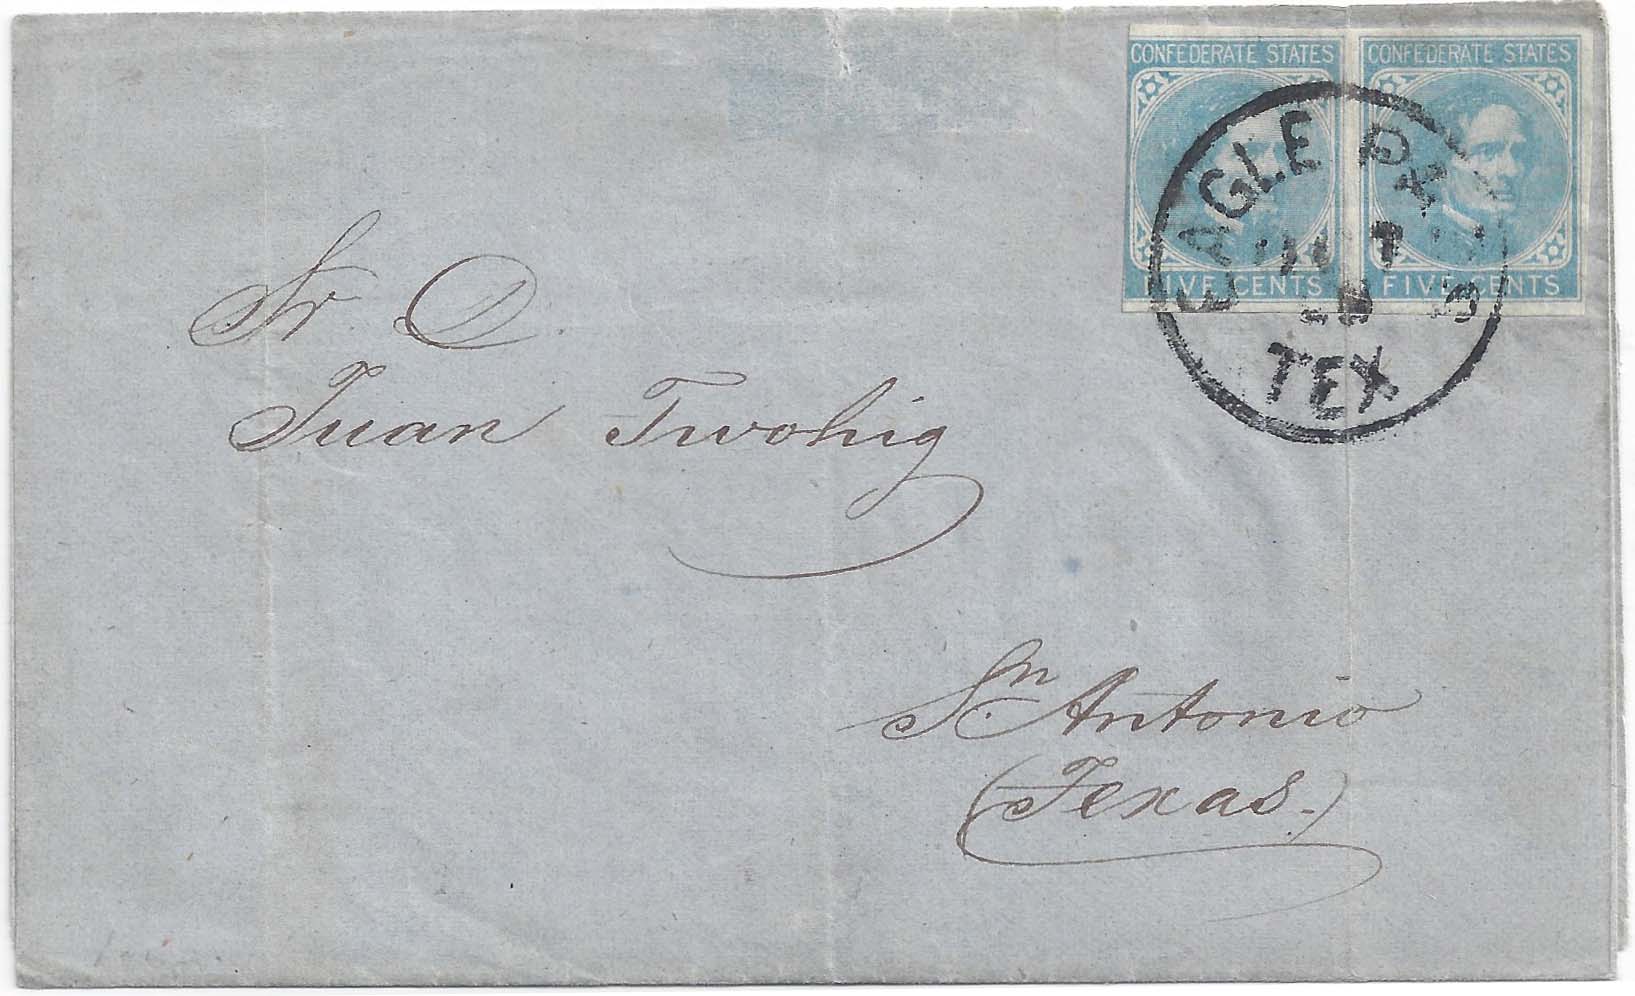 CONFEDERATE STATES CONFEDERATE STATES
FIVE CENTS FIVE CENTS
EAGLE
TEX
Sr. D.
Juan Twohig
Sn. Antonio
(Texas.)